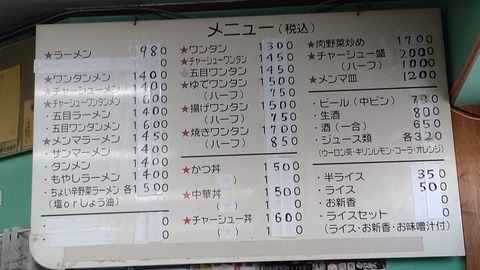 メニュー(税込)
★ラーメン 980
★ワンタンメン 1400
★チャーシューメン 1400
★チャーシューワンタンメン 1600
・五目ラーメン 1400
・五目ワンタンメン 1600
★メンマラーメン 1450
・サンマーメン 1400
・タンメン 1400
・もやしラーメン 1400
・ちょい辛野菜ラーメン 各1500
(塩orしょう油)
★ワンタン 1300
★チャーシューワンタン 1450
★五目ワンタン 1450
★ゆでワンタン 1500
(ハーフ) 750
★揚げワンタン 1500
(ハーフ) 750
★焼きワンタン 1700
(ハーフ) 850
★かつ丼 1500
★中華丼 1500
★チャーシュー丼 1600
★肉野菜炒め 1700
★チャーシュー盛 2000
(ハーフ) 1000
★メンマ皿 1200
・ビール(中ビン)
・生酒 800
・酒(一合) 650
・ジュース類 各320
(ウーロン茶・キリンレモン・コーラ・オレンジ)
・半ライス 350
・ライス 500
・お新香 0
・ライスセット 0
(ライス・お新香・お味噌汁付)